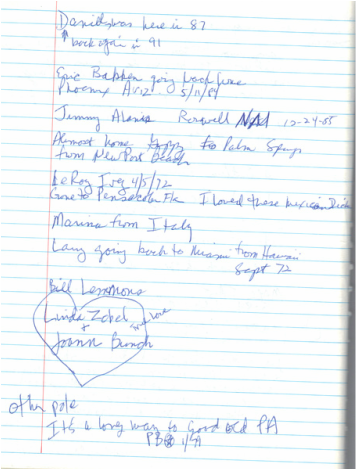 Daniels was here in 87
back again in 91
Eric going back home
Phoenix Ariz. 5/11/89
Jimmy Alanis Roswell NM 12-24-85
Almost home to Palm Springs
from NewPort Beach
LeRoy 4/5/72
Gone to Pensacola Fla I loved those Mexican
Marina from Italy
Larry going back to Miami from Hawaii
Sept 72
Bill Lemmons
Linda Zobel
+
Joann Bunch
other pole
It's a long way to Good old PA